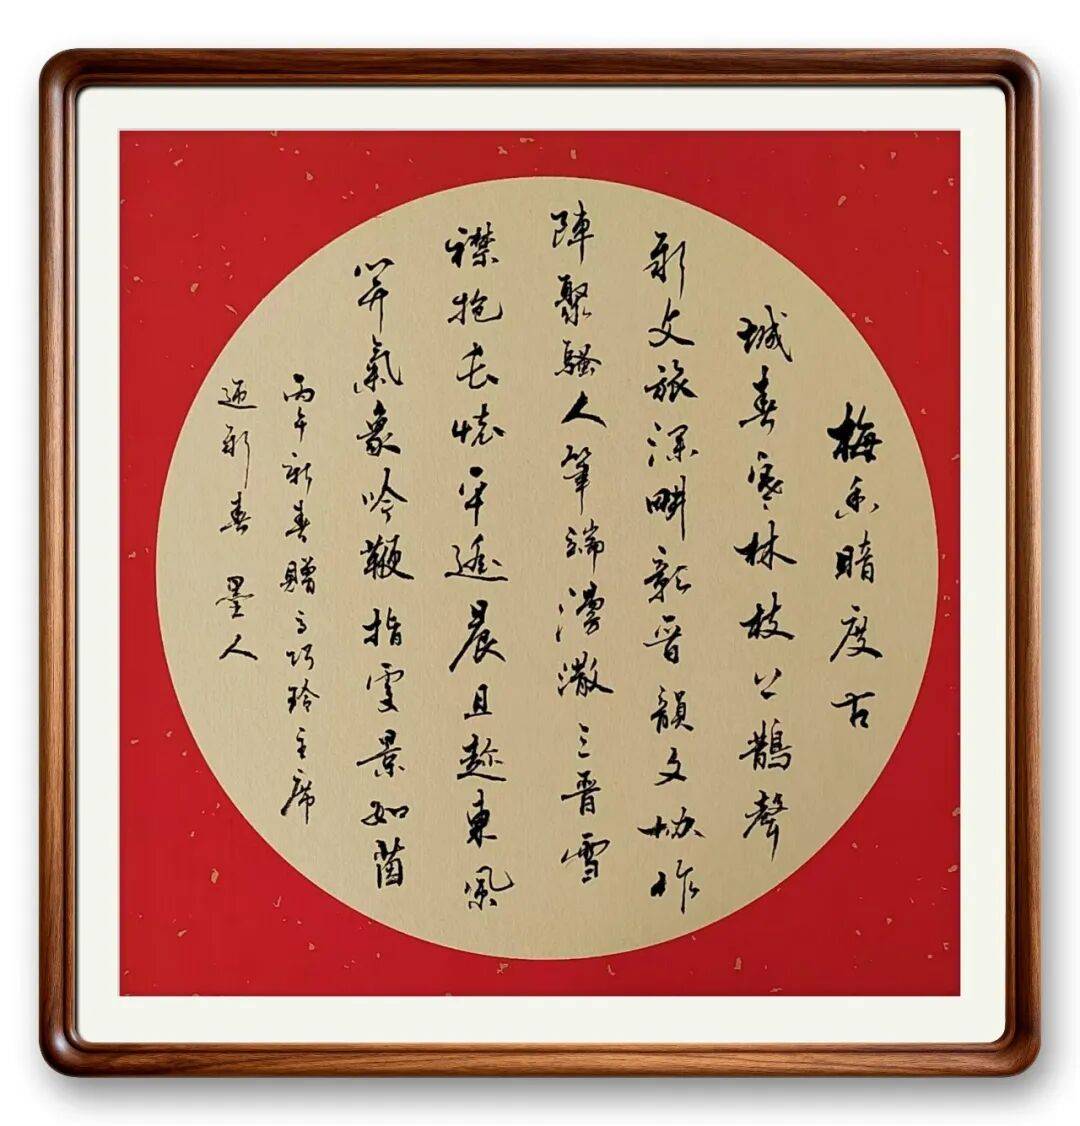 梅香暗度古
城春寒林枝上鵲聲
新文旅深畊彰晋韻文协作
陣聚騷人筆端漫潵三晋雪
襟抱長懷平遥晨且趁東風
開氣象吟鞭指處景如茵
丙午新春贈高巧玲主席
迎新春 墨人